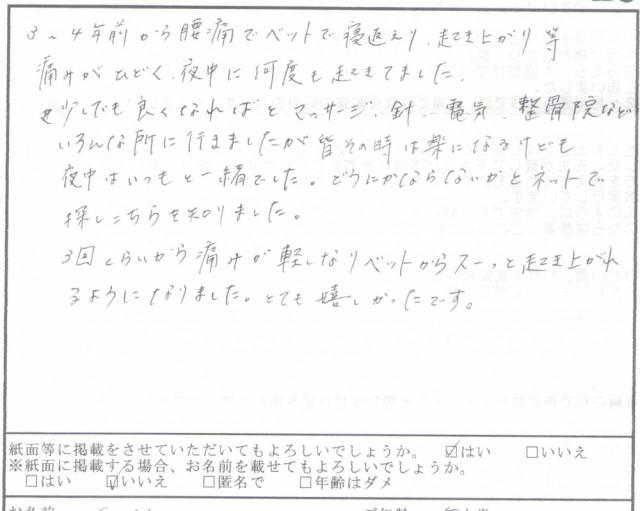 3～4年前から腰痛でベットで寝返えり、起き上がり等
痛みがひどく、夜中に何度も起きてました。
少しでも良くなればと マッサージ、針、電気、整骨院など
いろんな所に行きましたが皆その時は楽になるけども
夜中はいつもと一緒でした。どうにかならないかとネットで
探しこちらを知りました。
3回くらいから痛みが軽くなりベットからスーっと起き上がれ
るようになりました。とても嬉しかったです。
紙面等に掲載をさせていただいてもよろしいでしょうか。 ☑はい □いいえ
※紙面に掲載する場合、お名前を載せてもよろしいでしょうか。
□はい ☑いいえ □匿名で □年齢はダメ